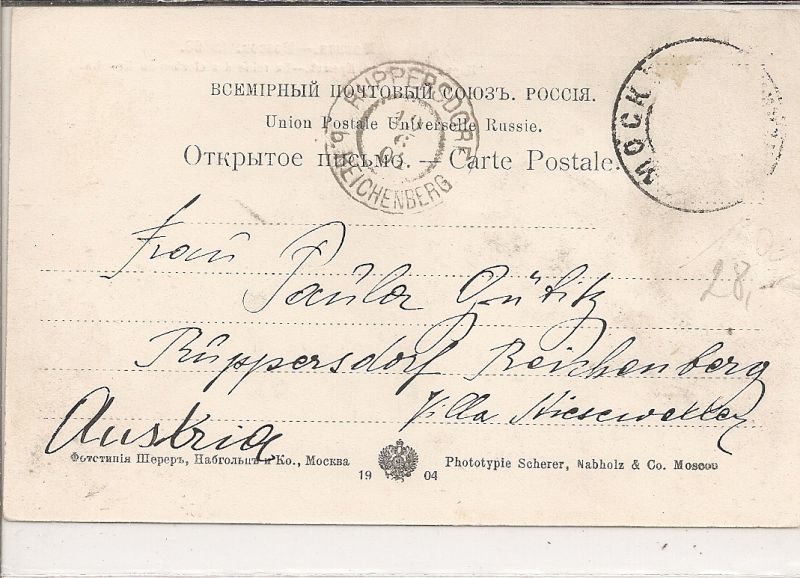 ВСЕМІРНЫЙ ПОЧТОВЫЙ СОЮЗЪ. РОССІЯ.
Union Postale Universelle Russie.
Открытое письмо. — Carte Postale.
RUPPERSDORF
b. REICHENBERG
МОСК
Frau
Paula
Rüppersdorf Reichenberg
Villa
Austria
28,-
Фототипія Шереръ, Набгольцъ и Ко., Москва
19 04
Phototypie Scherer, Nabholz & Co. Moscou